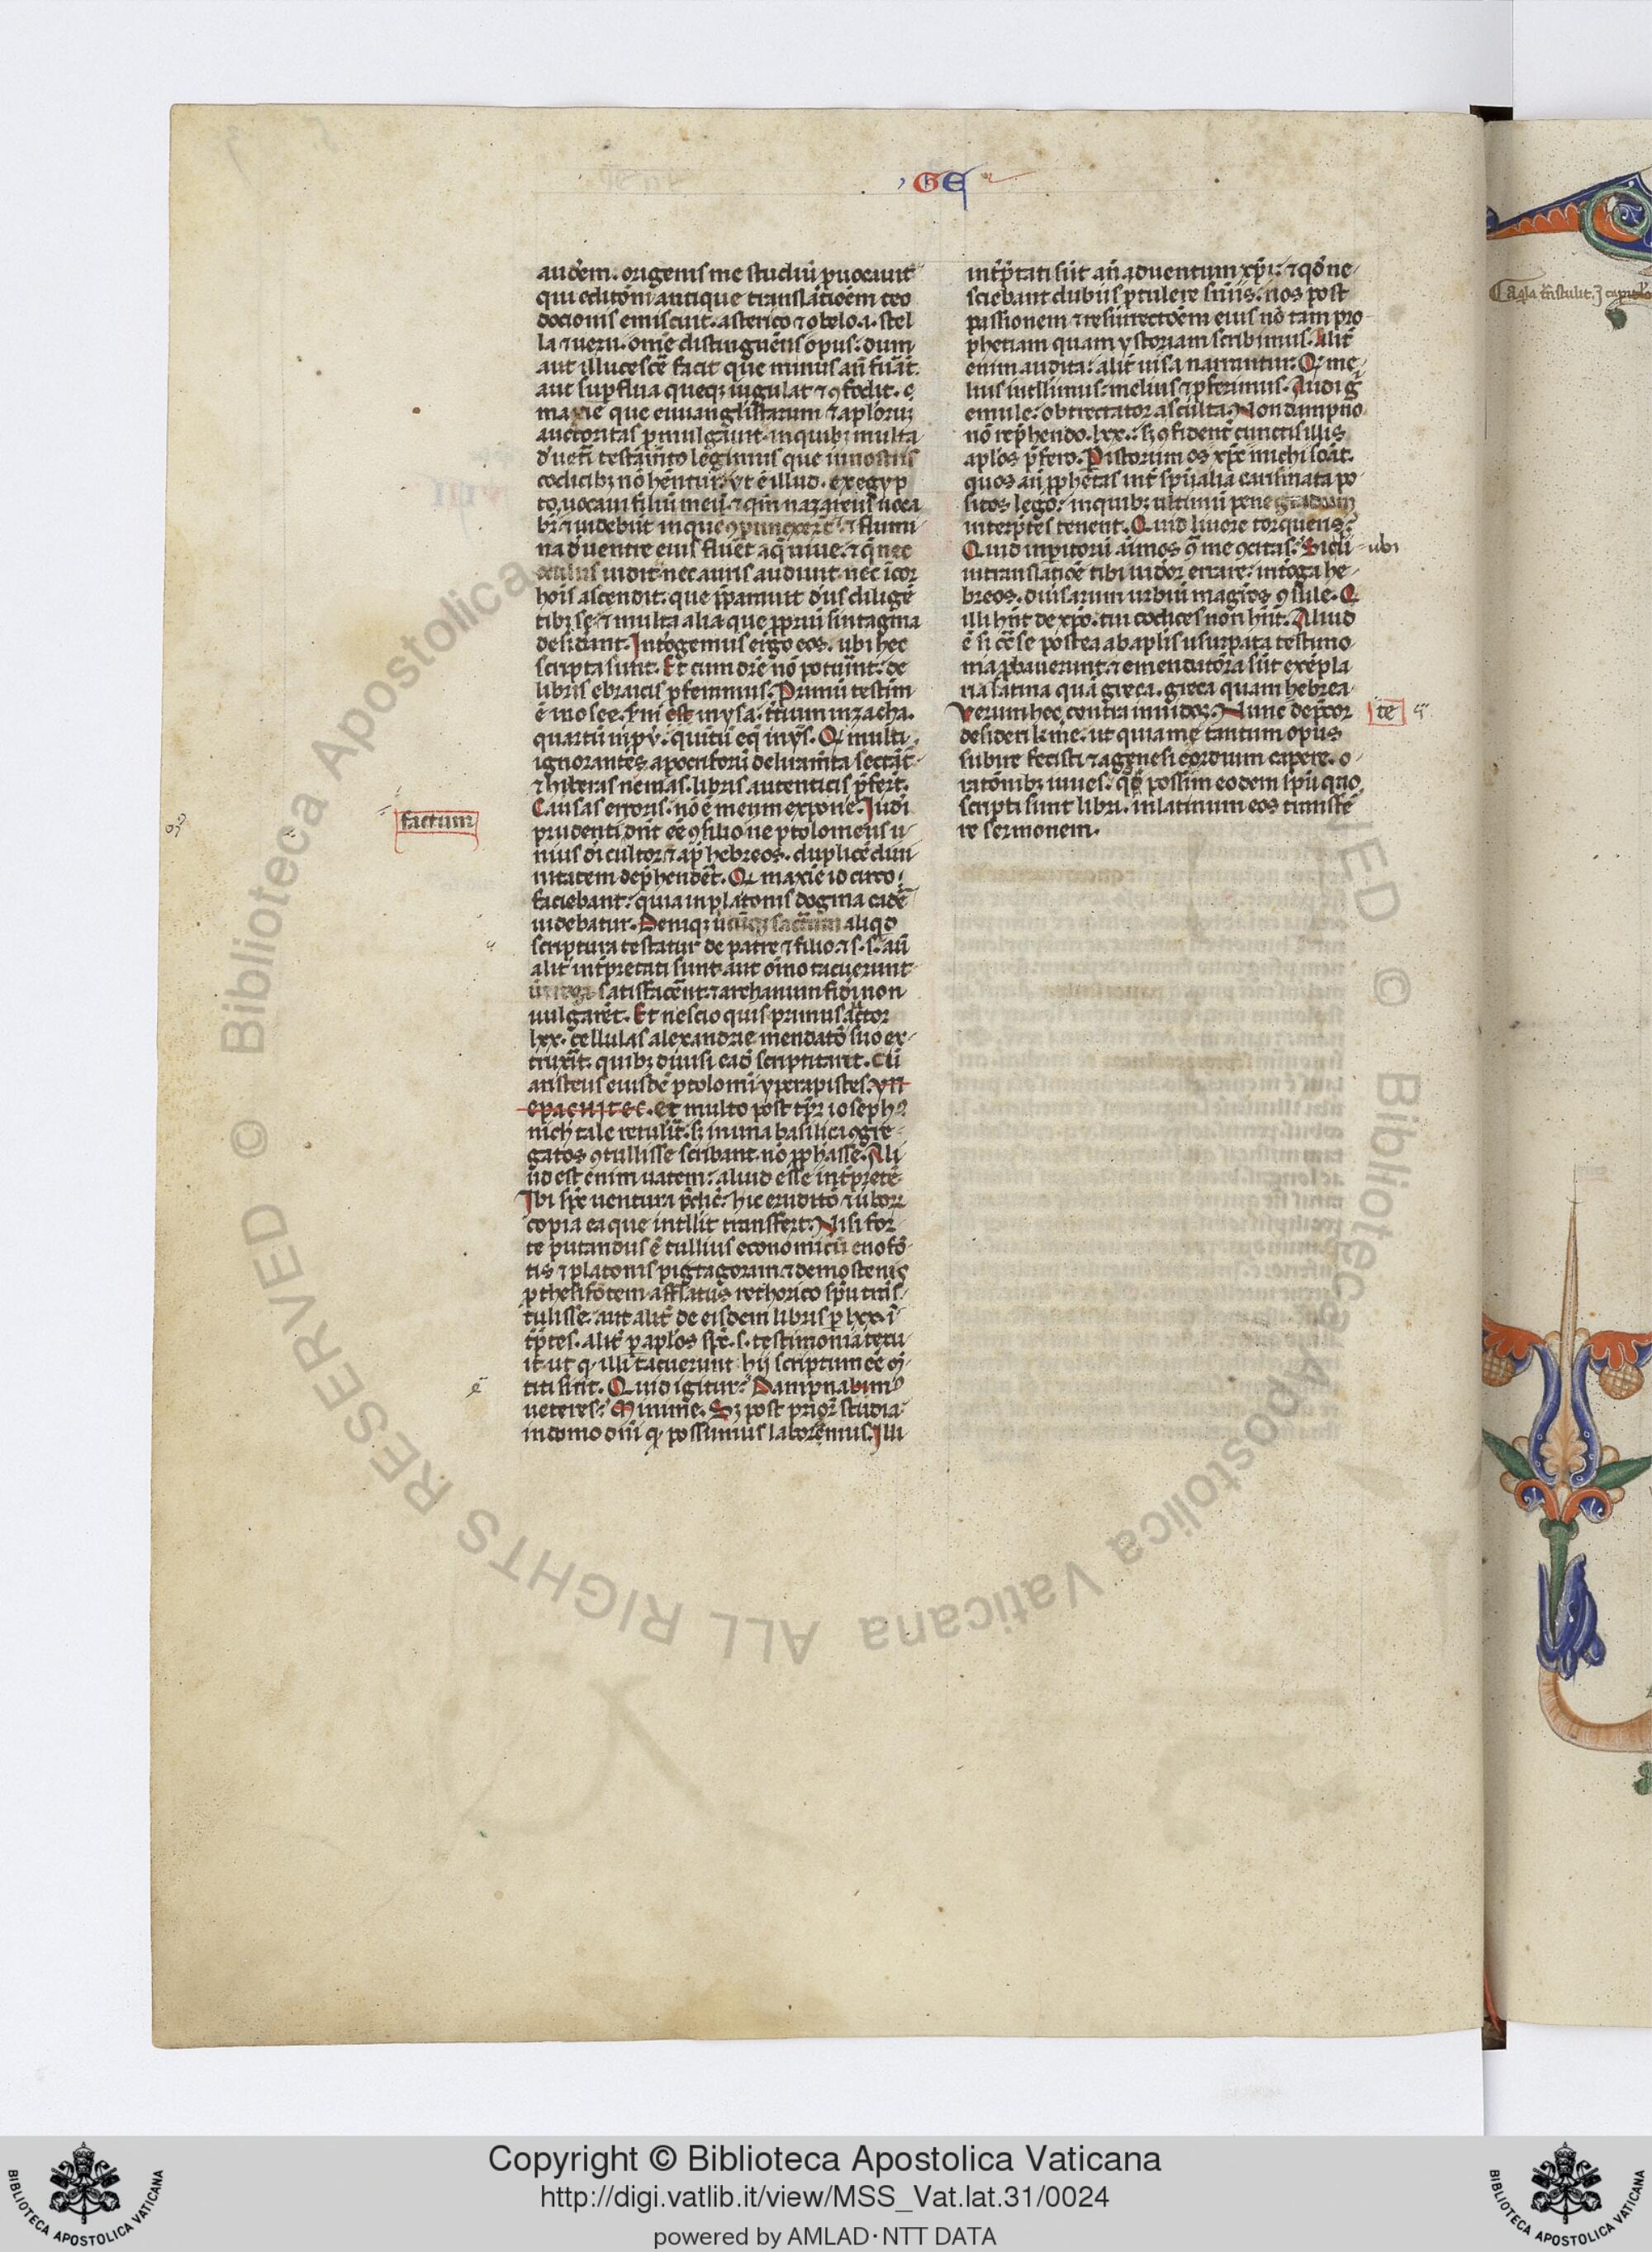 GE
auďem. origenis me studiū ꝓuocauit
qui editōni antique translatōem teo
docionis emiscuit. asterico ⁊ obelo .i. stel
la ⁊ ueru. om̄e distinguēs opus: dum
aut illucescē facit que minus an̄ fuāt.
aut suꝑflua queqꝫ iugulat ⁊ ꝯfodit. e
maxīe que euuanglistarum ⁊ apl̄oruꝫ
auctoritas ꝓmulgauit. in quibꝫ multa
d' uet̄i testām̄to legimus que in nostris
codicibꝫ nō hēntur. vt ē illud. ex egyp
to uocaui filiū meū. ⁊ qm̄ nazareus uoca
bit̄. ⁊ uidebūt in quē ꝯpunxer̄t. ⁊ flumi
na d' uentre eius fluēt aq̄ uiue. ⁊ q̄ nec
oculus uidit nec auris audiuit nec ī cor
hoīs ascendit: que p̄parauit d'us diligē
tibꝫ se. ⁊ multa alia que ꝓpriū sintagma
desidant. Int̄ogemus ergo eos. ubi hec
scripta sunt. Et cum dic̄e nō potūint: de
libris ebraicis ꝓferimus. Primū testim̄
ē in osee. s'm est in ysa. t̄tium in zacha.
quartū in ꝓv̄. quītū eq̄ in ys̄. Qđ multi
ignorantes. apocriforū deliram̄ta sectāt̄
⁊ hiberas nenias. libris autenticis p̄fert̄.
Causas erroris. nō ē meum exponē. Iudi
factum
prudenti dn̄t eē ꝯsilio ne ptolomeus u
nius d'i cultor ⁊ ap̄ hebreos. duplicē diui
nitatem dep̄henděr̄t. Qđ maxīe idcirco
faciebant: quia in platonis dogma cadē
uidebatur. Deniqꝫ ubicūqꝫ sacratum aliqđ
scriptura testatur de patre ⁊ filio ⁊ s. s. aū
alit̄ int̄pretati sunt. aut oīno tacuerunt
ut regi satisfacēnt. ⁊ archanum fidei non
uulgarēt. Et nescio quis primus actor
lxx. cellulas alexandrie mendatō suo ex
truxit̄. quibꝫ diuisi eađ scriptitarēt. Cū
aristeus eiusdē ptolomī yperapistes. yп
єpaсnιtєc. et multo post tp̄r iosephꝰ
nich' tale retulit̄. sꝫ in una basilica ꝯgre
gatos ꝯtullisse scribant. nō ꝓphasse. Ali
ud est enim uatem: aliud esse int̄pretē.
Ibi sp̄c uentura p̄dic̄: hic eruditō ⁊ ūborꝫ
copia ea que intllit transfert. Nisi for
te putandus ē tullius economicū enofō
tis ⁊ platonis pigtagoram. ⁊ demostenis
ꝓ thesifōtem afflatus rethorico sp̄u trās
tulisse. aut alit̄ de eisdem libris ꝑ lxx. ī
t̄p̄tes. alit̄ ꝑ apl̄os sp̄c. s. testimonia texu
it. ut qđ illi tacuerunt: hij scriptum eē mē
titi sint. Quid igitur: Dampnabimꝰ
ueteres: Minime. Sꝫ post prior̄ studia:
in domo d'ni qđ possumus laboremus. Illi
int̄p̄tati sūt an̄ aduentum xp̄i: ⁊ qđ ne
sciebant dubiis ꝓtulere sn̄iis: nos post
passionem ⁊ resurrectōem eius nō tam pro
phetiam quam ystoriam scribimus. Alit̄
enim audita: alit̄ uisa narrantur. Qđ me
lius intllimus: melius ⁊ ꝓferimus. Audi g̊
emule: obtrectator asculta. Non dampno
nō rep̄hendo. lxx.: sꝫ ꝯfident̄ cunctis illis
apl̄os p̄fero. P istorum os xp̄c michi sōat.
quos an̄ ꝓphetas int̄ spūalia carismata po
sitos lego: in quibꝫ ultimū pene gradum
interp̄tes tenent. Quid liuore torqueris:
Quid inp̄itorū aīmos ꝯ̄ me ꝯcitas: Sicubi
ubi
in translatōē tibi uidor errare: int̄oga he
breos. diuisarum urbiū magros ꝯsule. Qđ
illi hn̄t de xp̄o. tui codices non hn̄t. Aliud
ē si cōt̄ se postea ab apl̄is usurpata testimo
nia ꝓbauerunt. ⁊ emendatiōra sūt exēpla
ria latina quā greca. greca quam hebrea.
Verum hec contra inuidos. Nunc dep̄cor
te
desideri k̄me. ut quia me tantum opus
subire fecisti ⁊ a genesi exordium capere. o
ratōnibꝫ iuues. qō possim eodem sp̄u quo
scripti sunt libri. in latinum eos transferre
re sermonem.
Copyright © Biblioteca Apostolica Vaticana
http://digi.vatlib.it/view/MSS_Vat.lat.31/0024
powered by AMLAD·NTT DATA
BIBLIOTECA APOSTOLICA VATICANA
BIBLIOTECA APOSTOLICA VATICANA
ALL RIGHTS RESERVED © Biblioteca Apostolica Vaticana